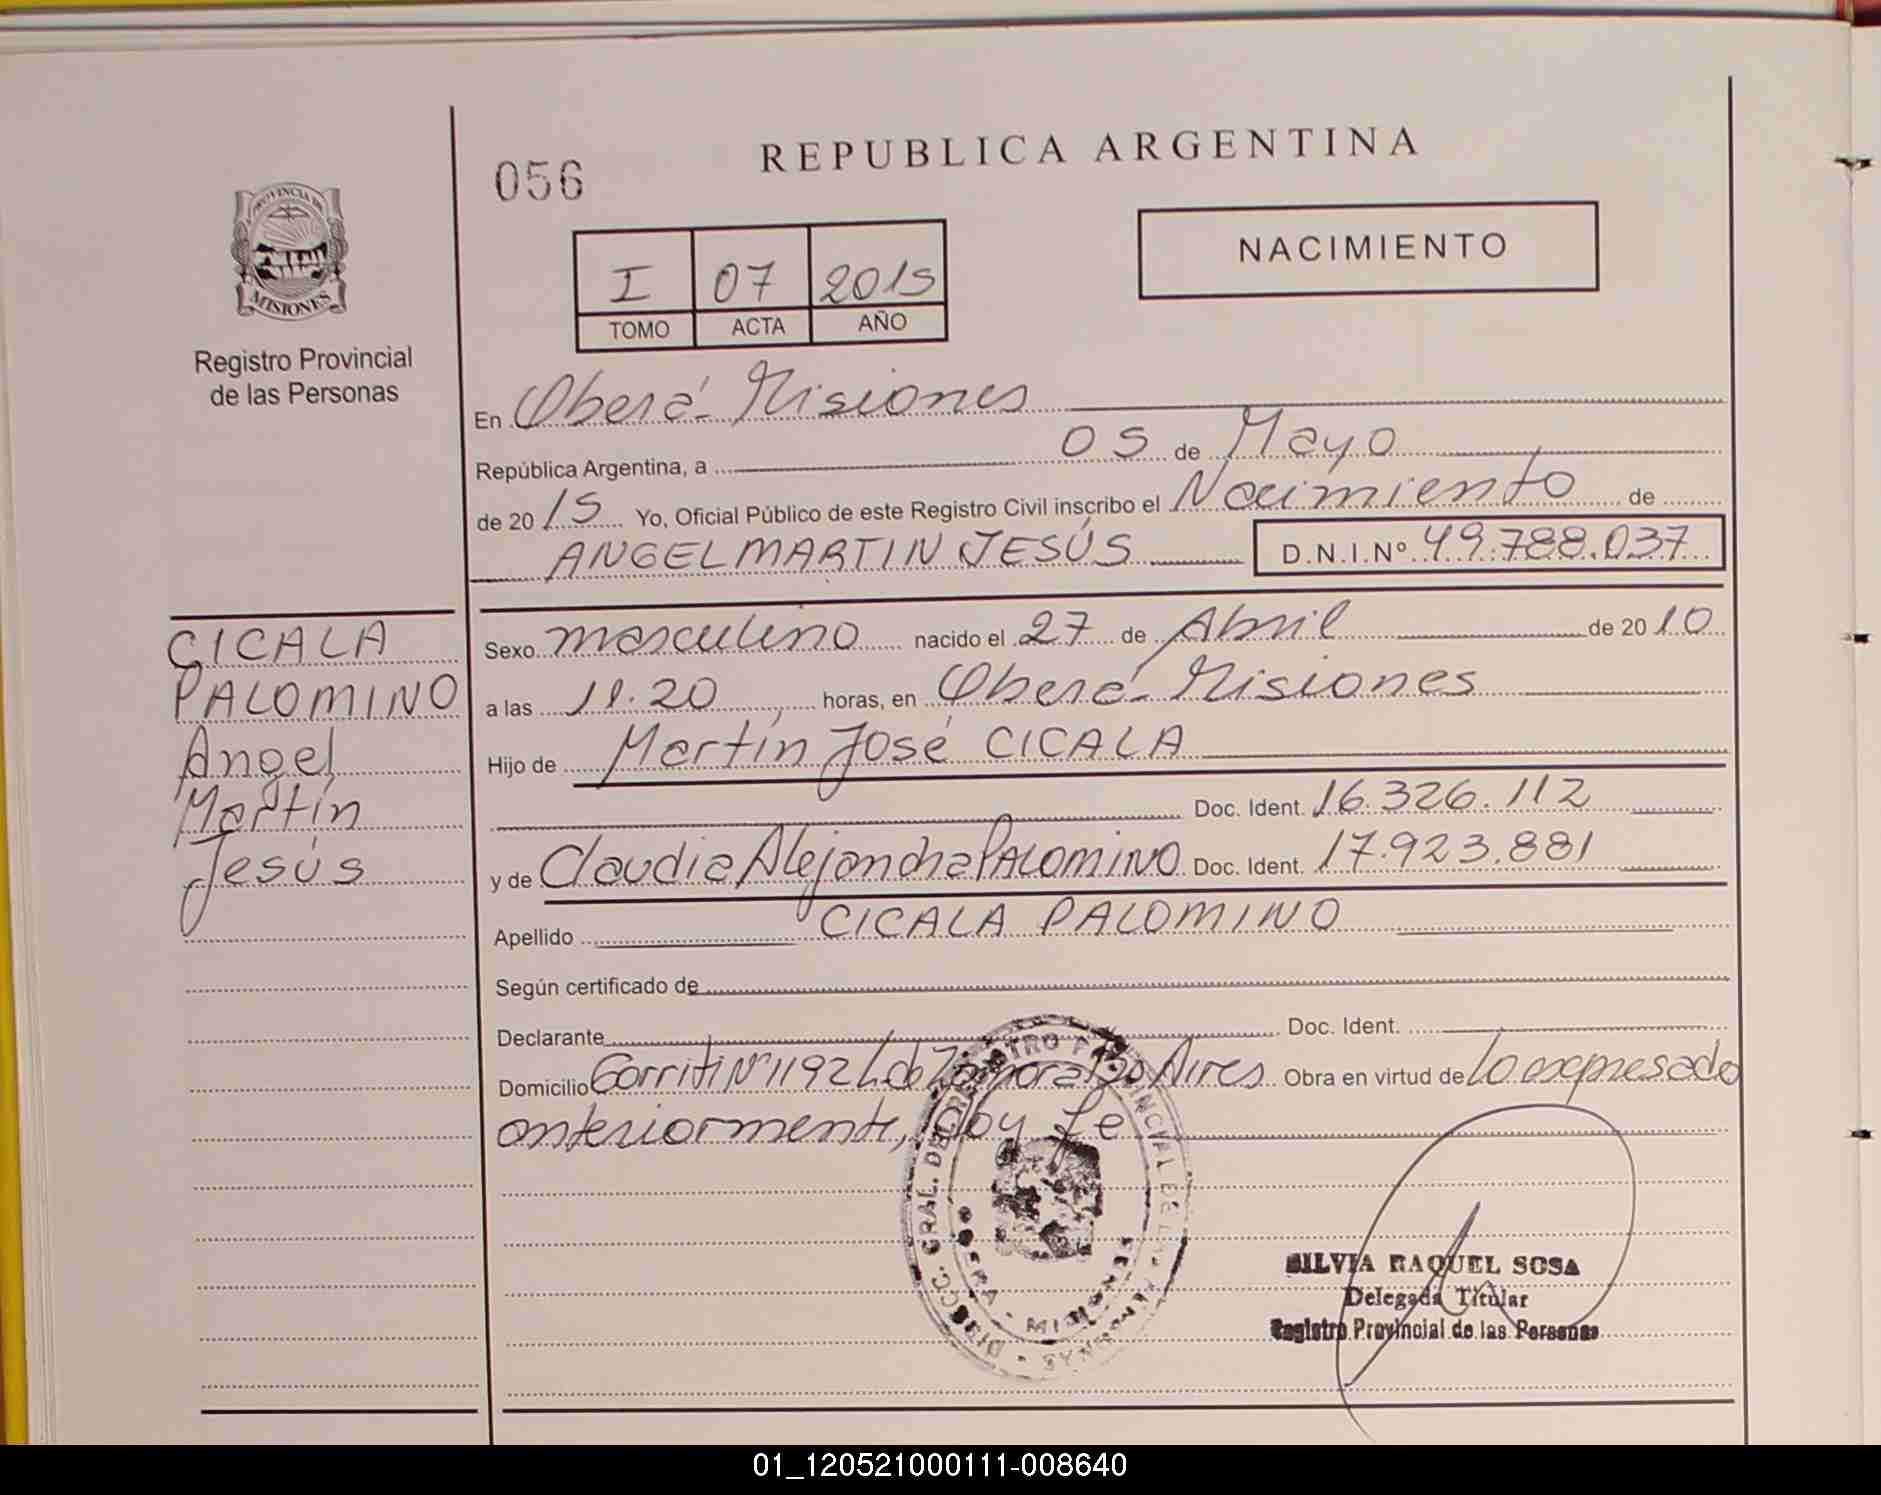 REPUBLICA ARGENTINA
056
NACIMIENTO
I 07 2015
TOMO ACTA AÑO
PROVINCIA DE
MISIONES
Registro Provincial
de las Personas
En Oberá - Misiones
República Argentina, a 05 de Mayo
de 2015 Yo, Oficial Público de este Registro Civil inscribo el Nacimiento de
ANGEL MARTIN JESÚS D.N.I.Nº 49.788.037
CICALA
PALOMINO
Angel
Martín
Jesús
Sexo masculino nacido el 27 de Abril de 2010
a las 11.20 horas, en Oberá - Misiones
Hijo de Martín José CICALA
Doc. Ident. 16.326.112
y de Claudia Alejandra PALOMINO Doc. Ident. 17.923.881
Apellido CICALA PALOMINO
Según certificado de
Declarante Doc. Ident.
Domicilio Gorriti Nº 1192 L. de Zamora Bo Aires Obra en virtud de lo expresado
anteriormente, doy fe
SILVIA RAQUEL SOSA
Delegada Titular
Registro Provincial de las Personas
01_120521000111-008640